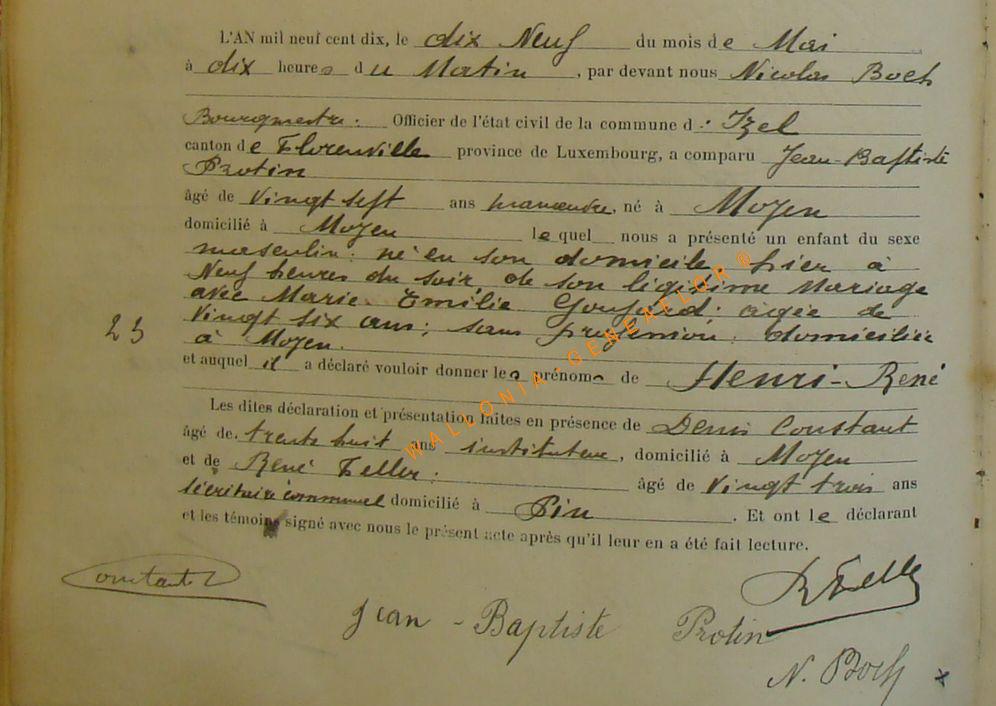 L'AN mil neuf cent dix, le dix Neuf du mois de Mai
à dix heures du Matin, par devant nous Nicolas Boch
Bourgmestre. Officier de l'état civil de la commune d' Izel
canton de Florenville province de Luxembourg, a comparu Jean-Baptiste
Protin
âgé de Vingt sept ans manoeuvre, né à Moyen
domicilié à Moyen lequel nous a présenté un enfant du sexe
masculin: né en son domicile hier à
Neuf heures du soir, de son légitime Mariage
avec Marie Emilie âgée de
Vingt six ans; sans profession; domiciliée
23
à Moyen.
et auquel il a déclaré vouloir donner les prénoms de Henri-René
Les dites déclaration et présentation faites en présence de Denis Constant
âgé de trente huit ans instituteur, domicilié à Moyen
et de René Feller: âgé de Vingt trois ans
sécrétaire communal domicilié à Pin. Et ont le déclarant
et les témoins signé avec nous le présent acte après qu'il leur en a été fait lecture.
WALLONIA-GENEAFLOR®
Constant D
R Feller
Jean-Baptiste Protin
N. Boch x